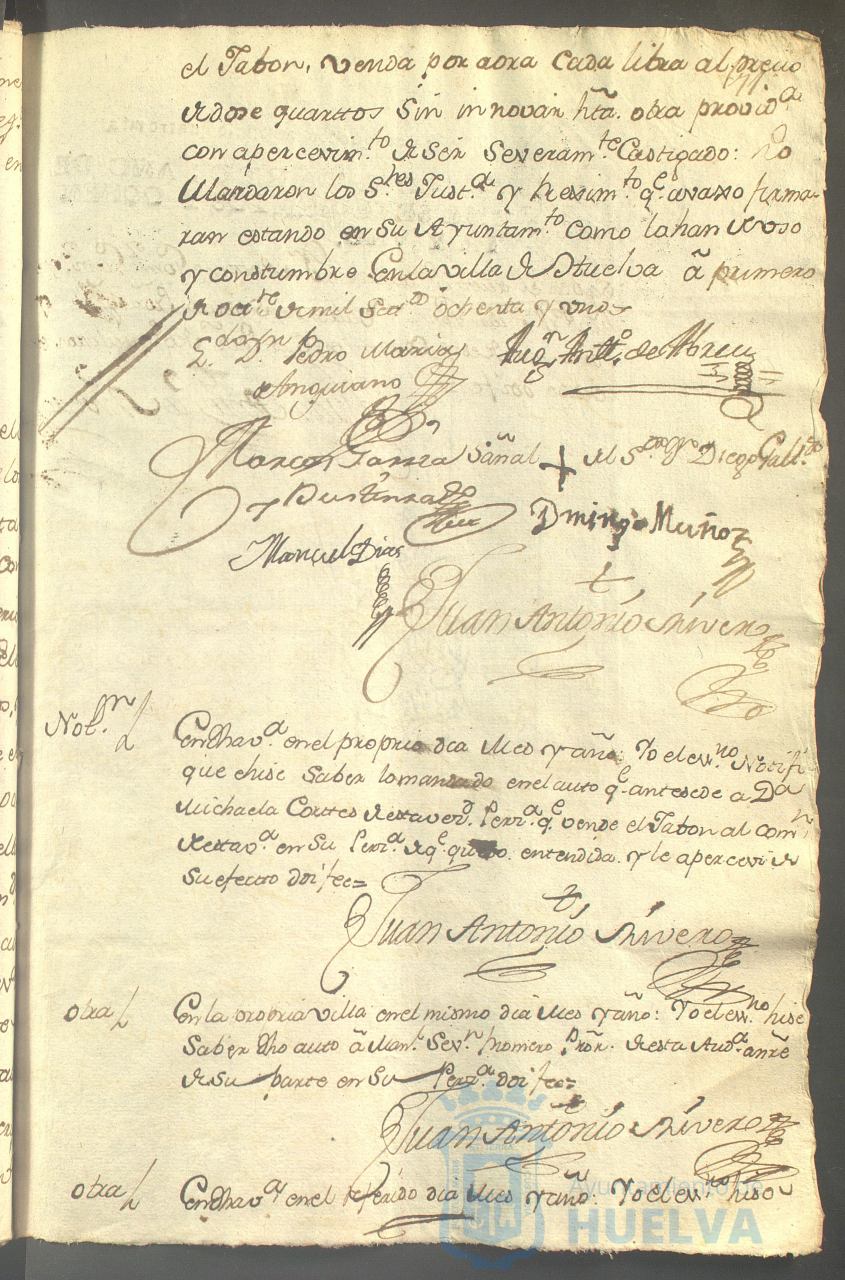 el Jabon, venda por aora cada libra al precio
de dose quarttos sin innovar htã. otra provid.a
con apercevim.to de ser severam.te Castigado: Yo
Mandaron los S.res Just.a y Rexim.to q.e avaxo firma-
ran estando en su Ayuntam.to como lo han de uso
y constumbre En la villa de Huelva â primero
de oct.re de mil Set.os ochenta y uno
L.do D.n Pedro Maria
Anguiano
Aug.n Antt.o de Abreu
Marcos Garzia Sañal
y Bustinza
+ del S.or Diego Gall.do
Domingo Muñoz
Manuel Dias
Juan Antonio Rivero
Not.on
En dha v.a en el proprio dia Mes y año: Yo el es.no Notifi
que e hise Saber lo mandado en el auto q.e antesede a D.a
Michaela Cortes de esta ved.d Perz.a q.e vende el Jabon al com.n
de esta v.a en su Perz.a de q.e quedo entendida y le apercevi de
su efecto doi fee=
Juan Antonio Rivero
otra
En la propria villa en el mismo dia Mes y año: Yo el es.no hise
Saber dho auto â Man.l Sev.no Romero Pror. de esta Aud.a
de su parte en su Perz.a doi fee=
Juan Antonio Rivero
otra
En dha v.a en el referido dia Mes y año: Yo el es.no hise
Ayuntamiento de
HUELVA